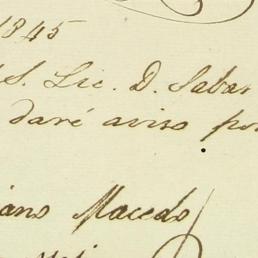 1845
S. Lic. D. Sabas
daré aviso por
iano Macedo